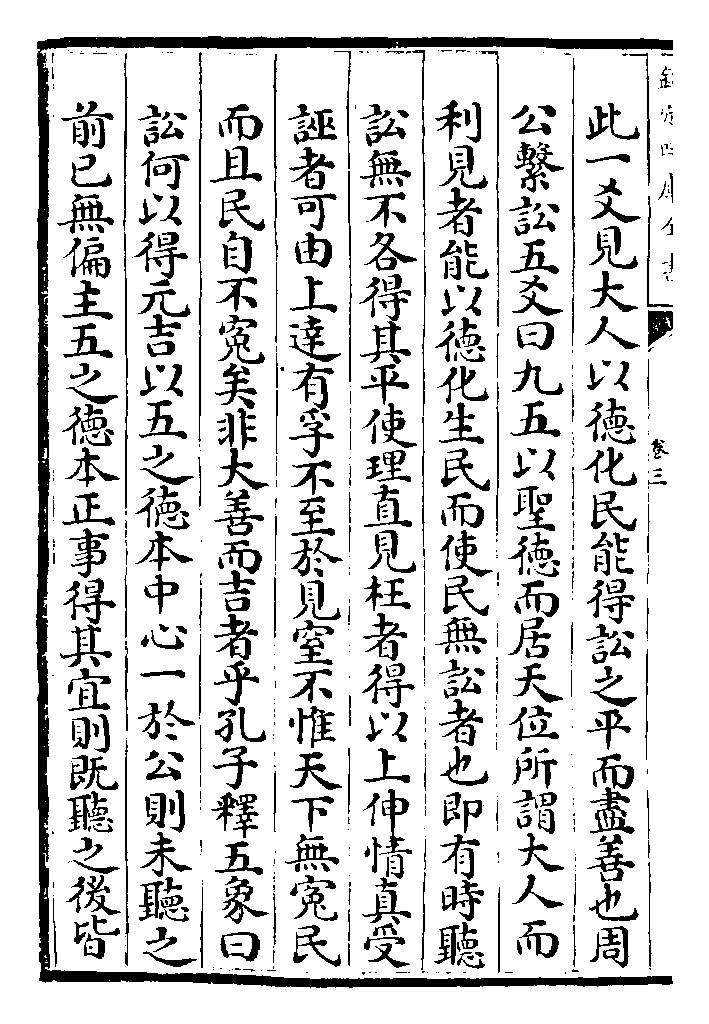 欽定四庫全書
卷三
此一爻見大人以德化民能得訟之平而盡善也周
公繫訟五爻曰九五以聖德而居天位所謂大人而
利見者能以德化生民而使民無訟者也即有時聽
訟無不各得其平使理直見枉者得以上伸情真受
誣者可由上達有孚不至於見窒不惟天下無冤民
而且民自不冤矣非大善而吉者乎孔子釋五象曰
訟何以得元吉以五之德本中心一於公則未聽之
前已無偏主五之德本正事得其宜則既聽之後皆